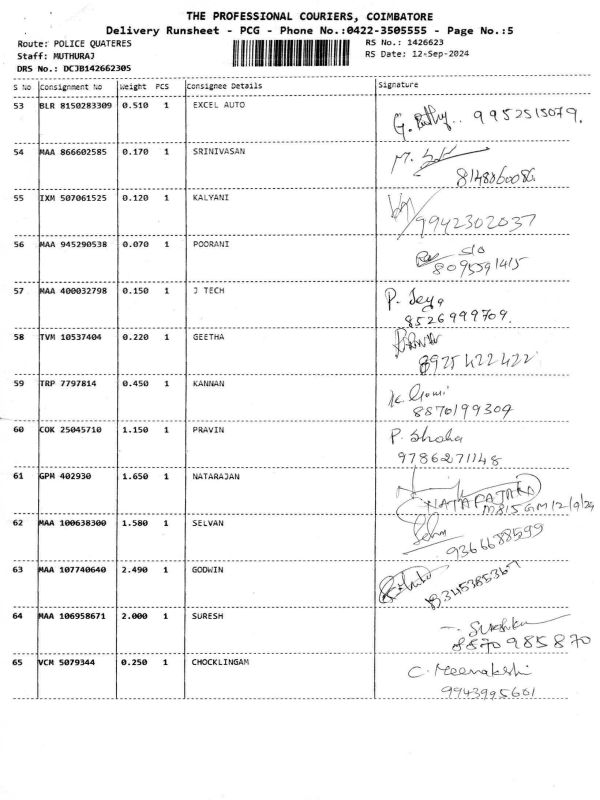 THE PROFESSIONAL COURIERS, COIMBATORE
Delivery Runsheet - PCG - Phone No.:0422-3505555 - Page No.:5
Route: POLICE QUATERES
RS No.: 1426623
Staff: MUTHURAJ
RS Date: 12-Sep-2024
DRS No.: DCJB142662305
S No Consignment No Weight PCS Consignee Details Signature
53 BLR 8150283309 0.510 1 EXCEL AUTO
9952515079.
54 MAA 866602585 0.170 1 SRINIVASAN
M.
8148060086
55 IXM 507061525 0.120 1 KALYANI
9942302037
56 MAA 945290538 0.070 1 POORANI
S/o
8095591415
57 MAA 400032798 0.150 1 J TECH
P. Jeya
8526999709.
58 TVM 10537404 0.220 1 GEETHA
8925422422
59 TRP 7797814 0.450 1 KANNAN
K. Gomi
8870199304
60 COK 25045710 1.150 1 PRAVIN
P. Shoba
9786271148
61 GPM 402930 1.650 1 NATARAJAN
NATARAJAN
12/9/24
62 MAA 100638300 1.580 1 SELVAN
9366688599
63 MAA 107740640 2.490 1 GODWIN
8345385367
64 MAA 106958671 2.000 1 SURESH
8870985870
65 VCM 5079344 0.250 1 CHOCKLINGAM
C. Meenakshi
9943995601